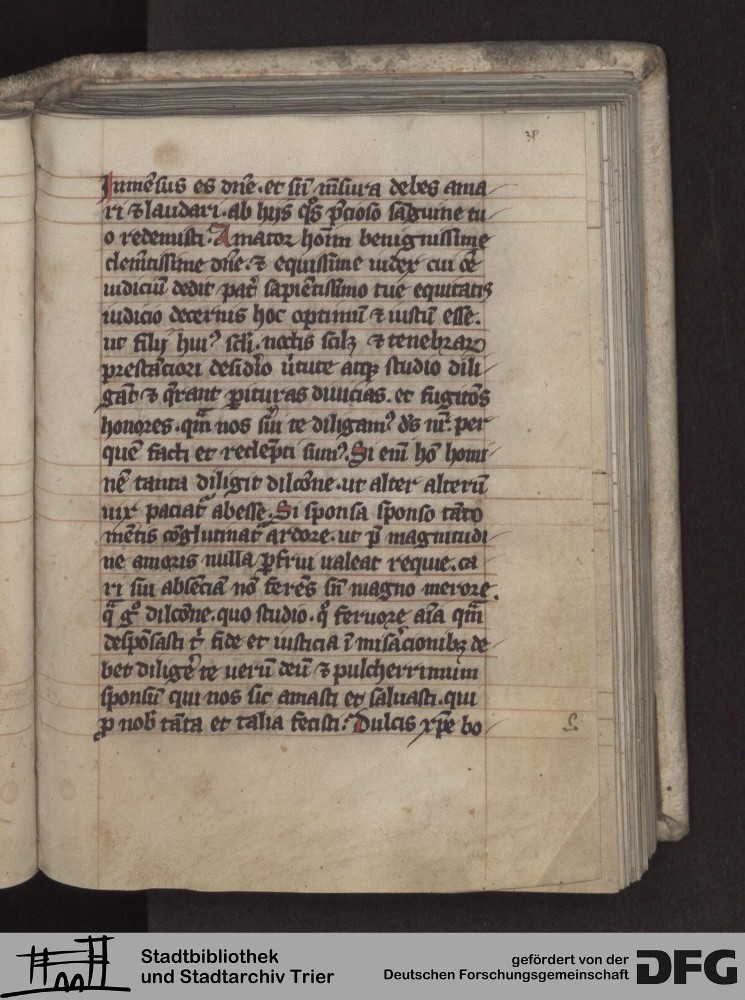 38
Inmēsus es dn̄e. et sn̄ mēsura debes ama
ri ⁊ laudari. ab hijs qͦs p̄cioso sāguine tu
o redemisti. Amator hoīm benignissime
clemētissime dn̄e. ⁊ equissime iudex cui oē
iudiciū dedit pat̄ sapiētissimo tue equitatis
iudicio decernis hoc optimū ⁊ iustū esse.
ut filij huiꝰ sc̄li. noctis sclꝫ ⁊ tenebraꝝ
prestāciori desidīo v̄tute atqꝫ studio dili
gāt ⁊ q̄rant ꝑituras diuicias. et fugitōs
honores. qm̄ nos sui te diligamꝰ ds̄ nr̄. per
quē facti et redēpti sumꝰ. Si enī hō homi
nē tanta diligit dilcōne. ut alter alterū
uix paciat᷑ abesse. Si sponsa sponso tāto
mētis cōglutinat᷑ ardore. ut p̄ magnitudi
ne amoris nulla ꝑfrui ualeat requie. ca
ri sui absēciā nō ferēs sn̄ magno merore.
q̄ gͦ dilcōne. quo studio. qͦ feruore aīa qm̄
despōsasti t᷑ fide et iusticia ī mis̄acionibꝫ de
bet diligē te uerū deū ⁊ pulcherrimum
sponsū qui nos sic amasti et saluasti. qui
ꝓ nob̄ tāta et talia fecisti. Dulcis xp̄e bo
Stadtbibliothek
und Stadtarchiv Trier
gefördert von der
Deutschen Forschungsgemeinschaft
DFG